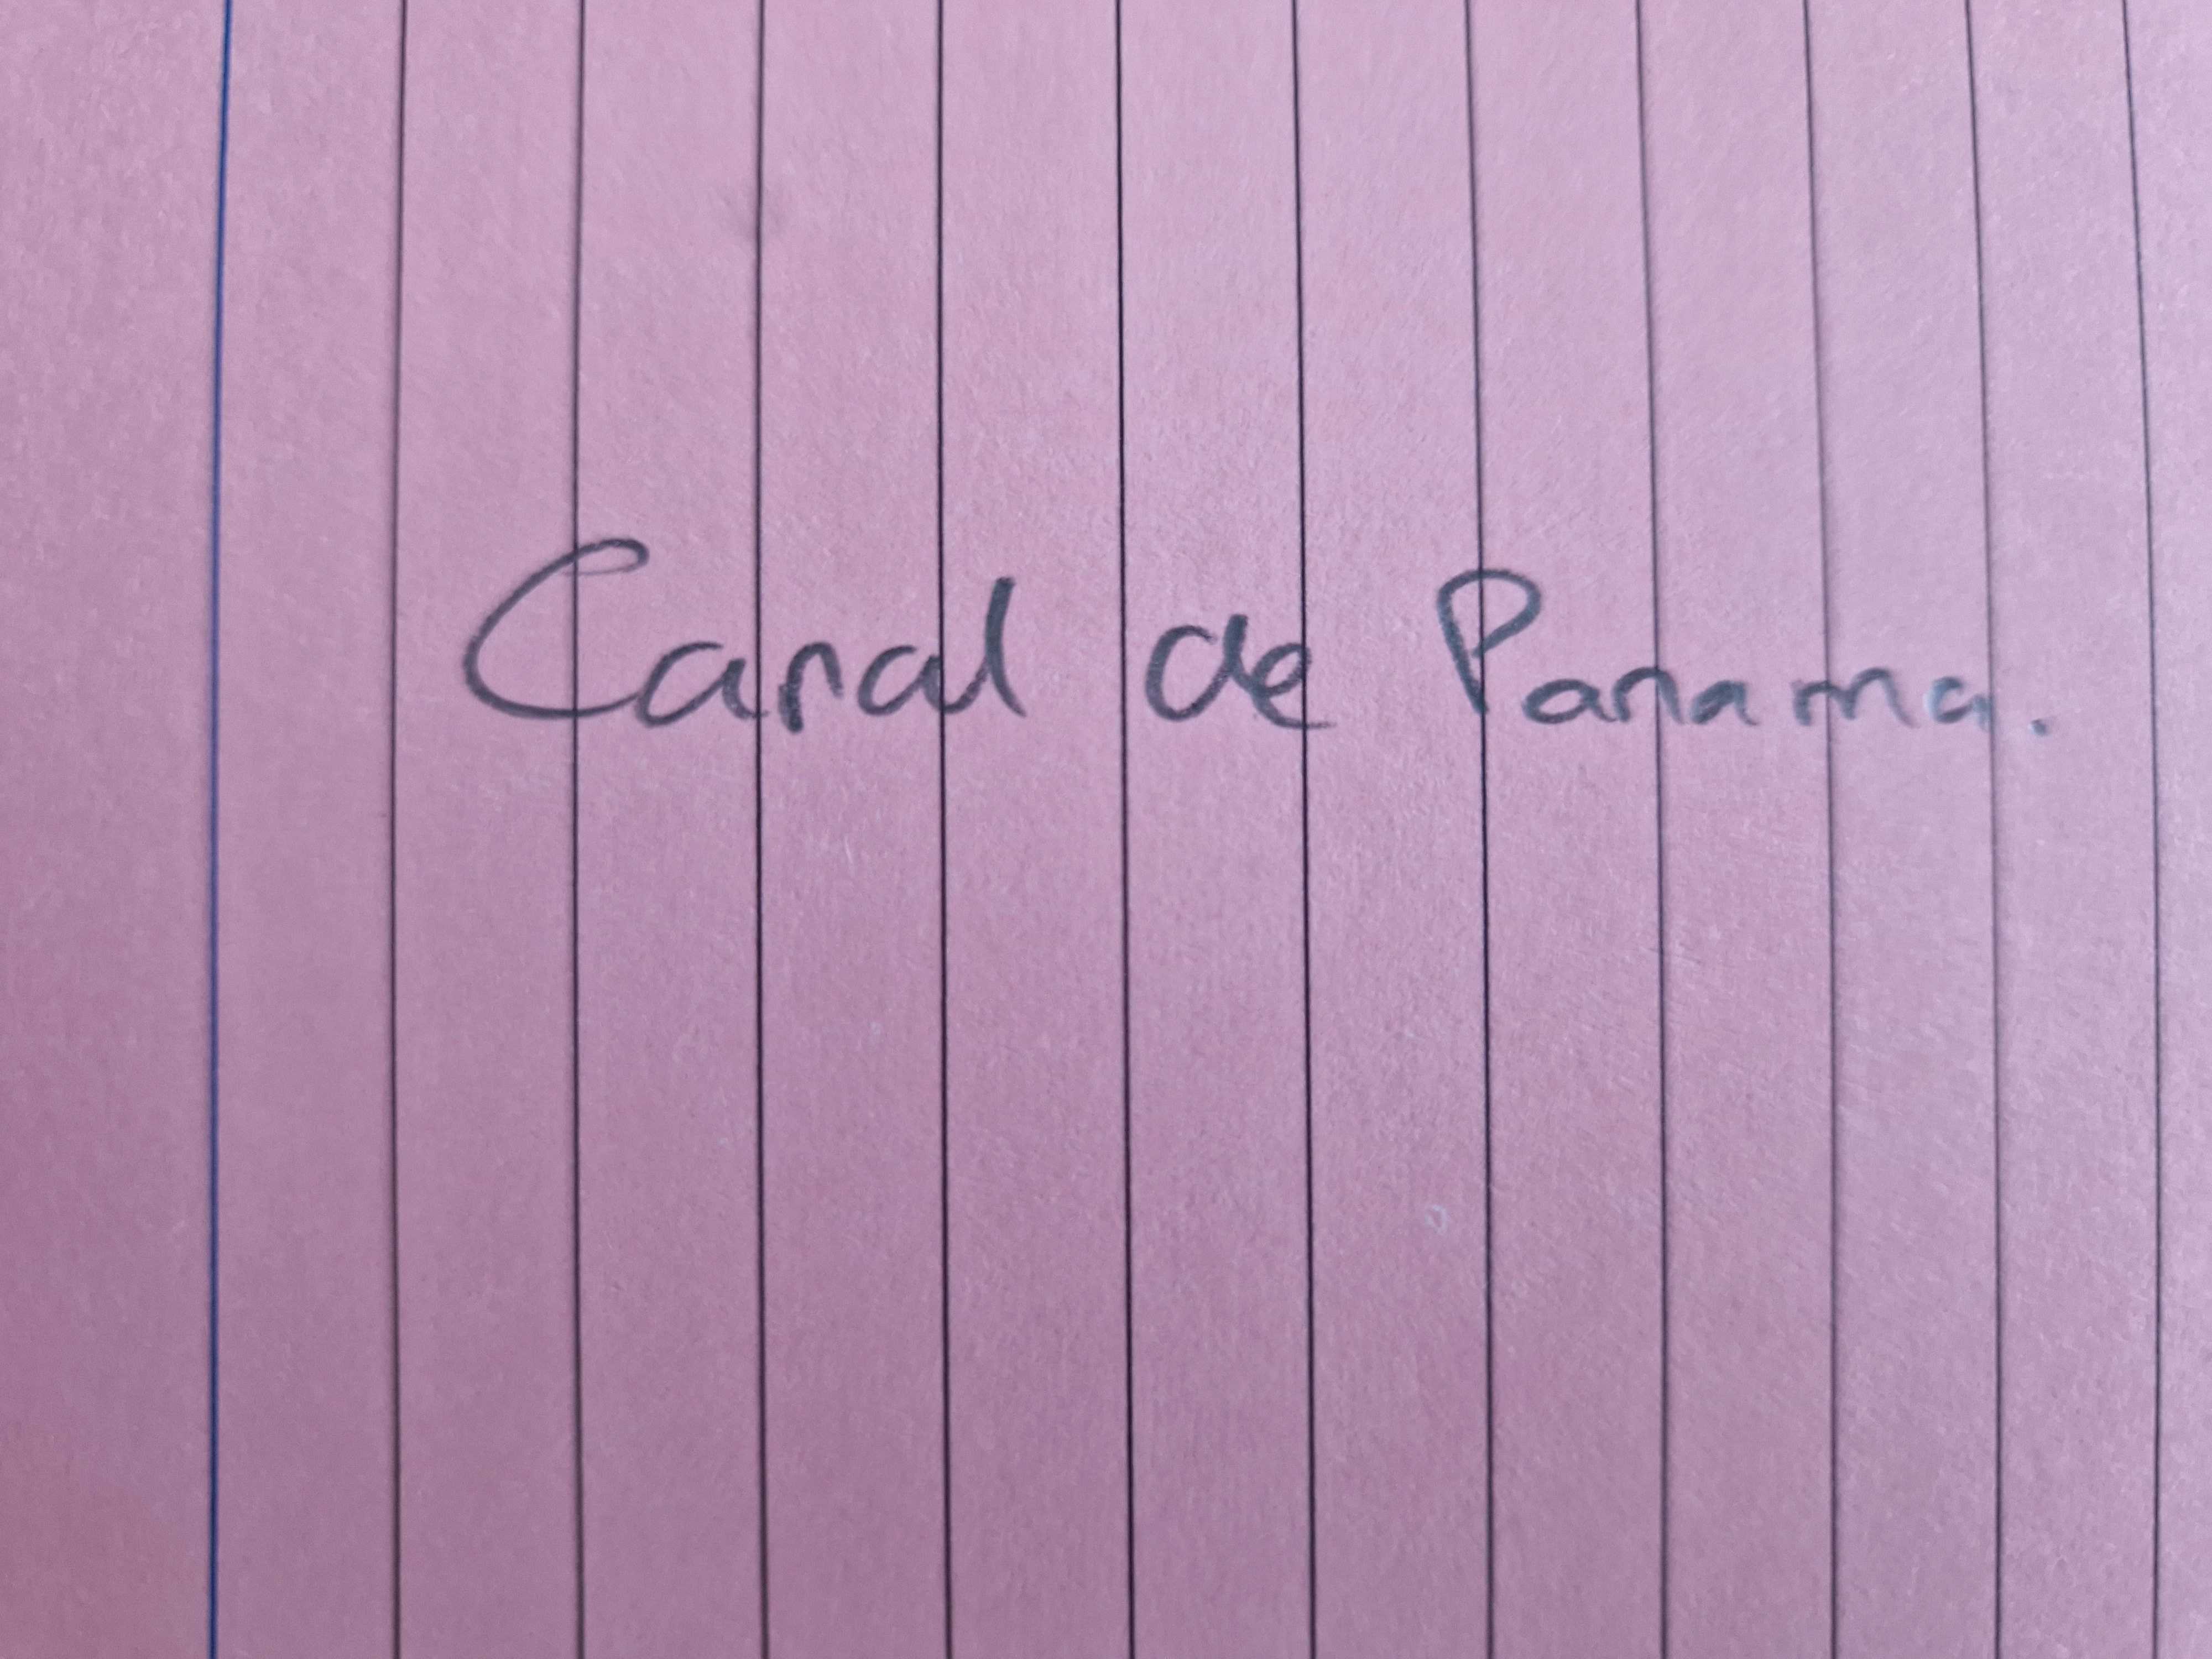 Canal de Panama.